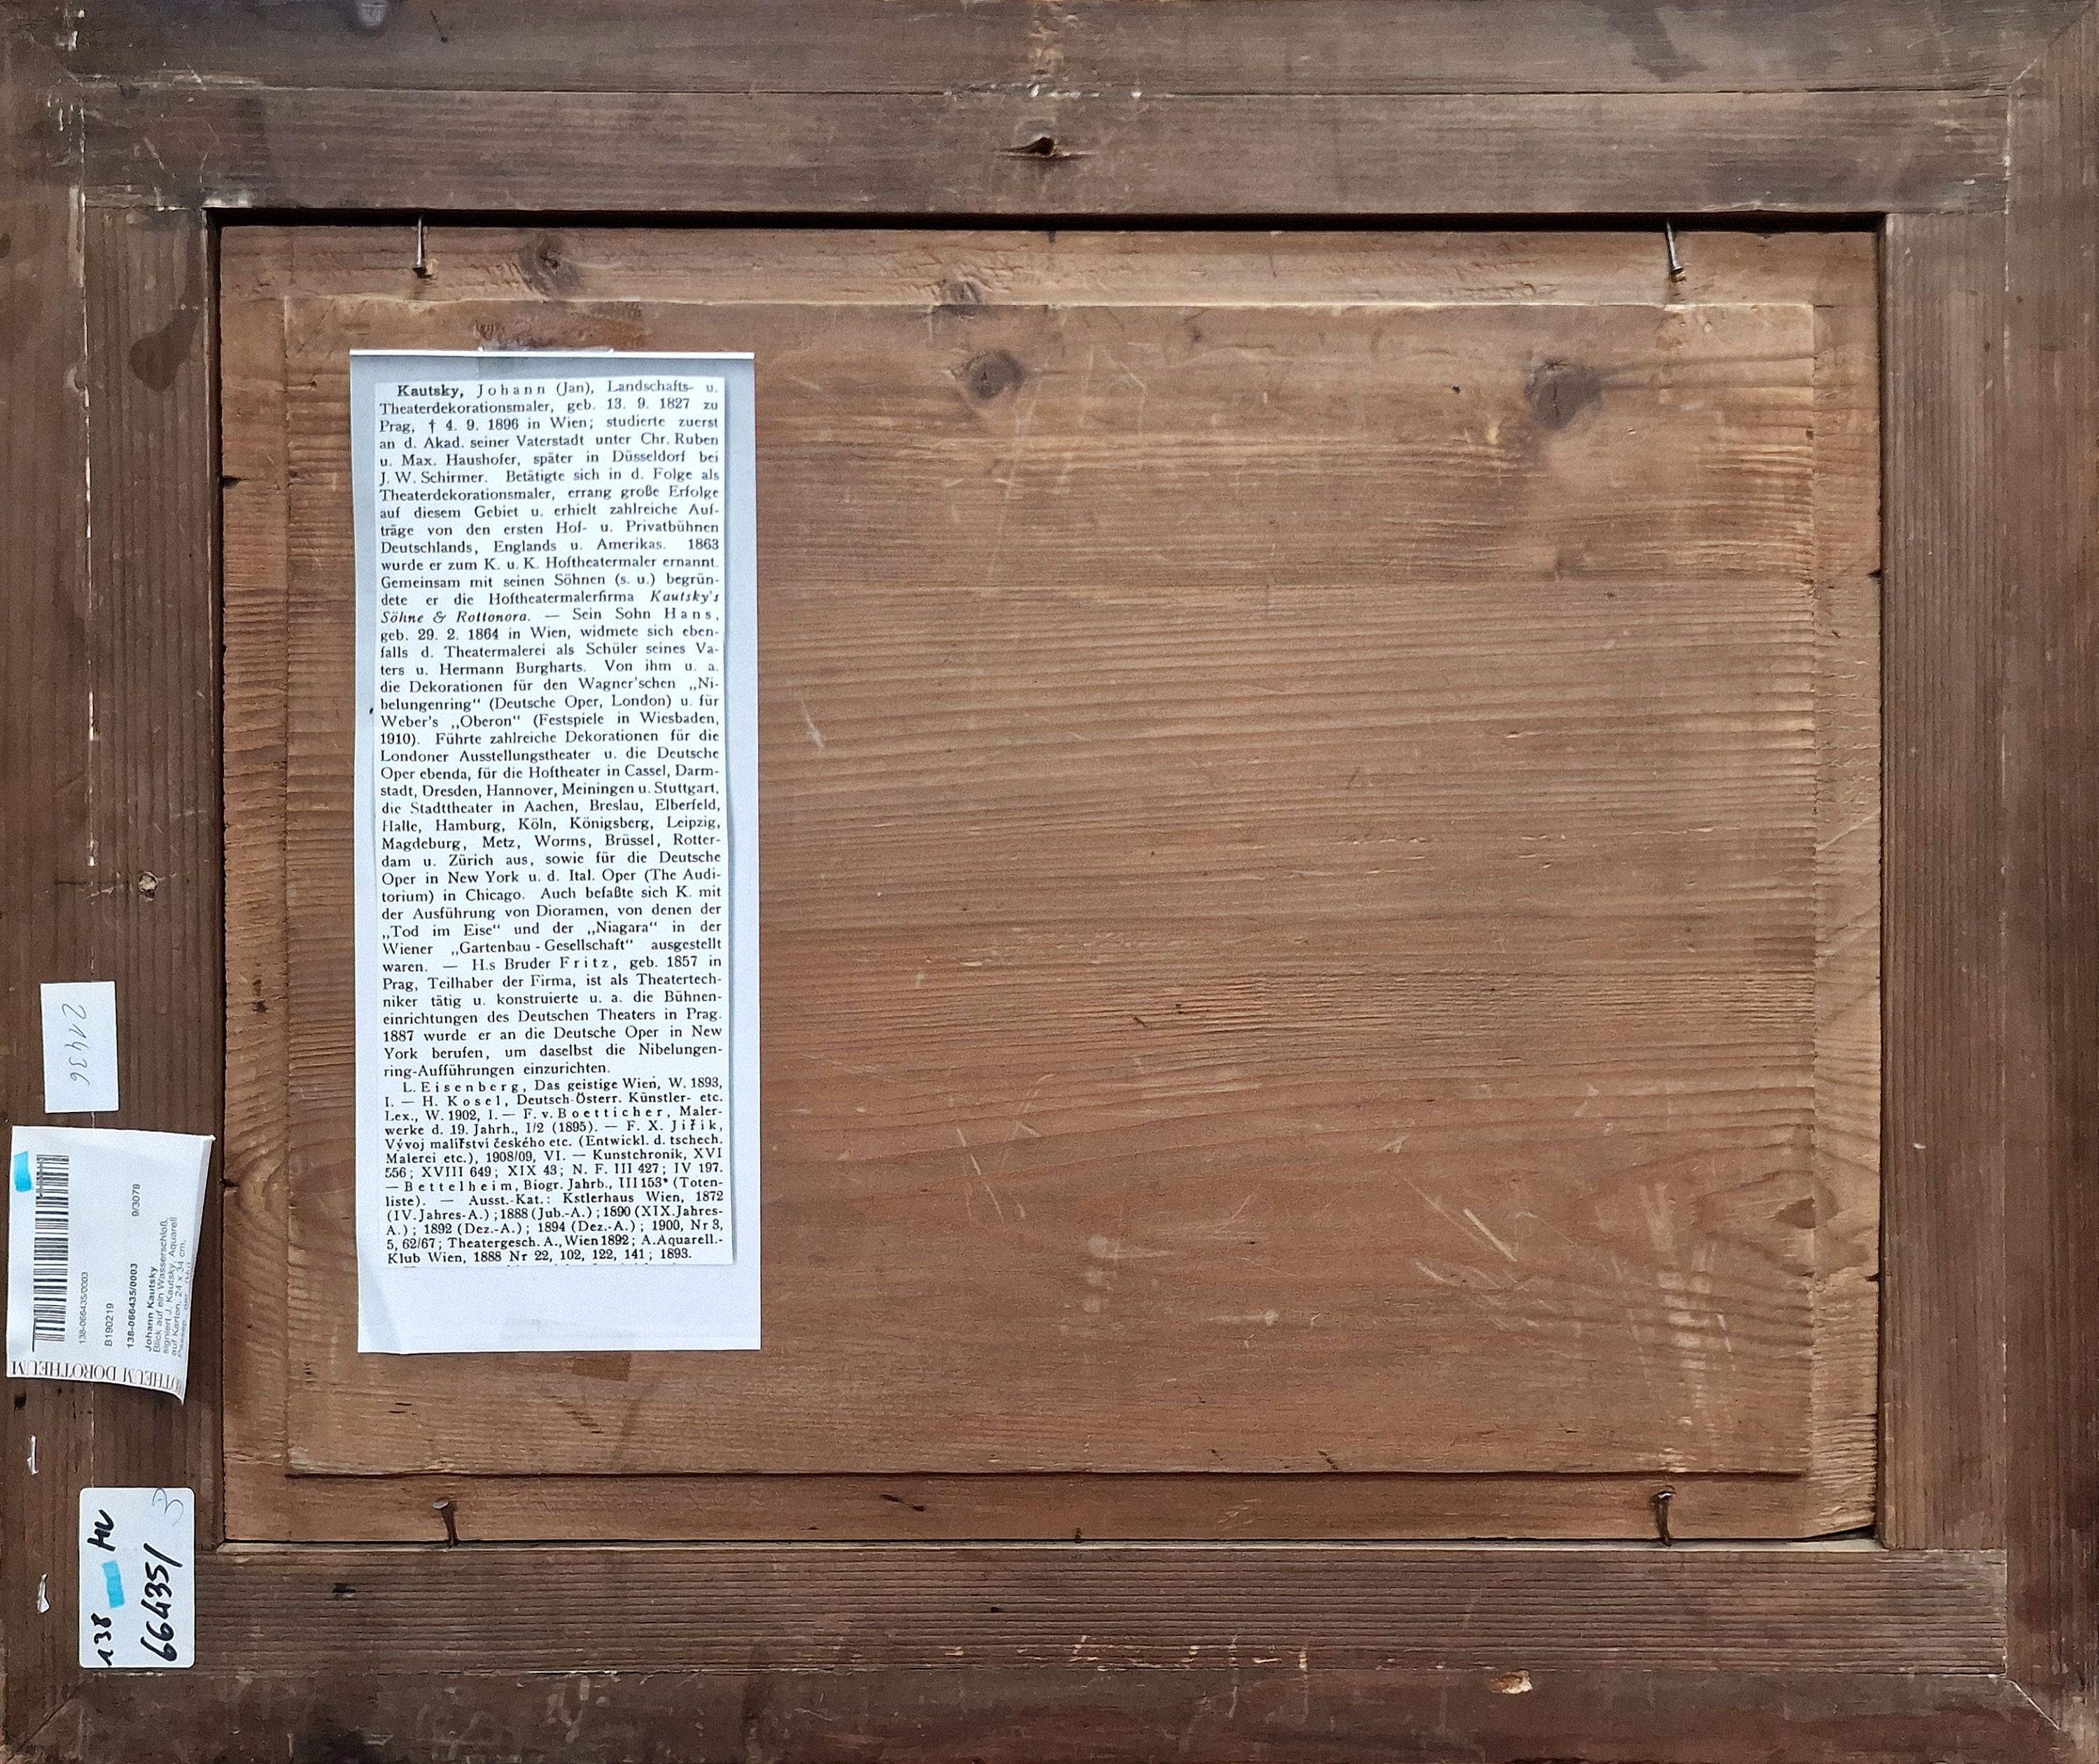 Kautsky, Johann (Jan), Landschafts- u.
Theaterdekorationsmaler, geb. 13. 9. 1827 zu
Prag, † 4. 9. 1896 in Wien; studierte zuerst
an d. Akad. seiner Vaterstadt unter Chr. Ruben
u. Max. Haushofer, später in Düsseldorf bei
J. W. Schirmer. Betätigte sich in d. Folge als
Theaterdekorationsmaler, errang große Erfolge
auf diesem Gebiet u. erhielt zahlreiche Auf-
träge von den ersten Hof- u. Privatbühnen
Deutschlands, Englands u. Amerikas. 1863
wurde er zum K. u. K. Hoftheatermaler ernannt.
Gemeinsam mit seinen Söhnen (s. u.) begrün-
dete er die Hoftheatermalerfirma Kautsky's
Söhne & Rottonora. — Sein Sohn Hans,
geb. 29. 2. 1864 in Wien, widmete sich eben-
falls d. Theatermalerei als Schüler seines Va-
ters u. Hermann Burgharts. Von ihm u. a.
die Dekorationen für den Wagner'schen „Ni-
belungenring“ (Deutsche Oper, London) u. für
Weber's „Oberon“ (Festspiele in Wiesbaden,
1910). Führte zahlreiche Dekorationen für die
Londoner Ausstellungstheater u. die Deutsche
Oper ebenda, für die Hoftheater in Cassel, Darm-
stadt, Dresden, Hannover, Meiningen u. Stuttgart,
die Stadttheater in Aachen, Breslau, Elberfeld,
Halle, Hamburg, Köln, Königsberg, Leipzig,
Magdeburg, Metz, Worms, Brüssel, Rotter-
dam u. Zürich aus, sowie für die Deutsche
Oper in New York u. d. Ital. Oper (The Audi-
torium) in Chicago. Auch befaßte sich K. mit
der Ausführung von Dioramen, von denen der
„Tod im Eise“ und der „Niagara“ in der
Wiener „Gartenbau-Gesellschaft“ ausgestellt
waren. — H.s Bruder Fritz, geb. 1857 in
Prag, Teilhaber der Firma, ist als Theatertech-
niker tätig u. konstruierte u. a. die Bühnen-
einrichtungen des Deutschen Theaters in Prag.
1887 wurde er an die Deutsche Oper in New
York berufen, um daselbst die Nibelungen-
ring-Aufführungen einzurichten.
L. Eisenberg, Das geistige Wien, W. 1893,
I. — H. Kosel, Deutsch-Österr. Künstler- etc.
Lex., W. 1902, I. — F. v. Boetticher, Maler-
werke d. 19. Jahrh., I/2 (1895). — F. X. Jiřik,
Vývoj malířství českého etc. (Entwickl. d. tschech.
Malerei etc.), 1908/09, VI. — Kunstchronik, XVI
556; XVIII 649; XIX 43; N. F. III 427; IV 197.
— Bettelheim, Biogr. Jahrb., III 153* (Toten-
liste). — Ausst.-Kat.: Kstlerhaus Wien, 1872
(IV. Jahres-A.); 1888 (Jub.-A.); 1890 (XIX. Jahres-
A.); 1892 (Dez.-A.); 1894 (Dez.-A.); 1900, Nr 3,
5, 62/67; Theatergesch. A., Wien 1892; A. Aquarell.-
Klub Wien, 1888 Nr 22, 102, 122, 141; 1893.
21436
138-066435/0003
B190219 9/3078
138-066435/0003
Johann Kautsky
Blick auf ein Wasserschloß,
signiert J. Kautsky, Aquarell
auf Karton, 24 x 34 cm,
THEUM DOROTHEUM
138
66435/
3